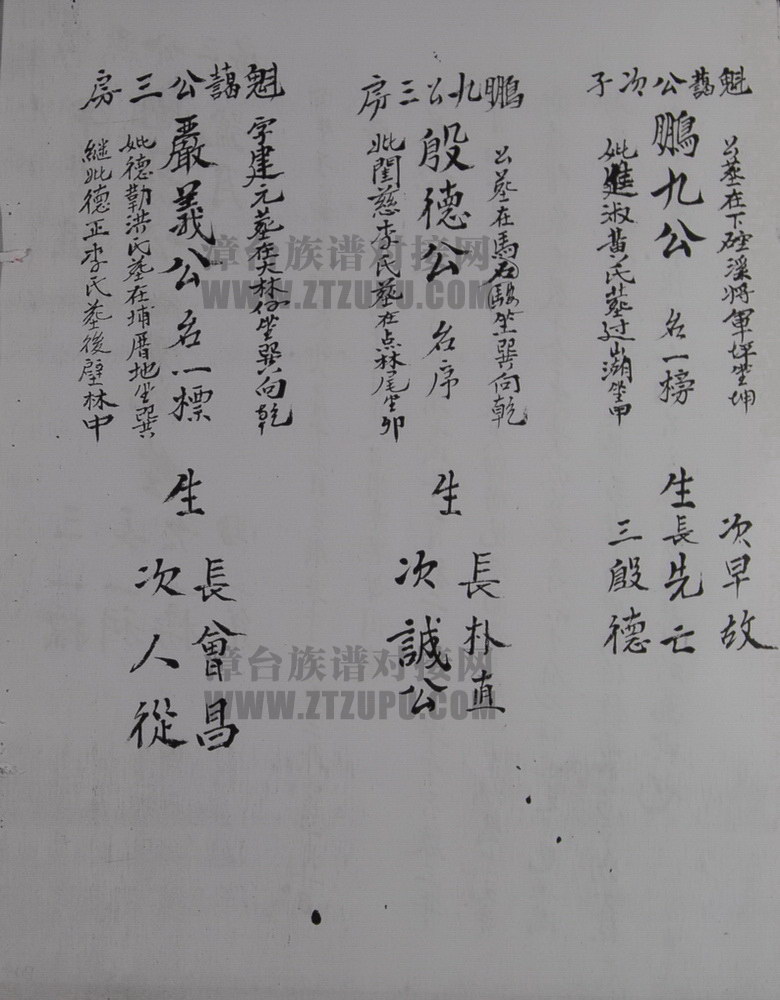 魁謁公次子
公墓在下硿溪將軍坪坐坤
鵬九公 名一榜
妣 淑黃氏墓过山瀨坐甲
生
次早故
長先亡
三殷德
鵬九公三房
公墓在馬 坐巽向乾
殷德公 名序
妣閨慈李氏墓在点林尾坐卯
生
長朴直
次誠公
魁謁公三房
字建元墓在大林 坐巽向乾
嚴義公 名一標
妣德勤洪氏墓在埔厝地坐巽
継妣德正李氏墓後壁林中
生
長會昌
次人從
漳台族谱对接网
WWW.ZTZUPU.COM
漳台族谱对接网
WWW.ZTZUPU.COM